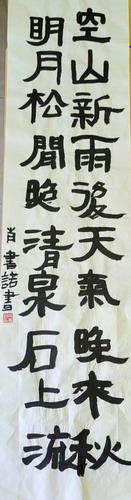 空山新雨後天氣晚來秋
明月松間照清泉石上流
肖書諾書